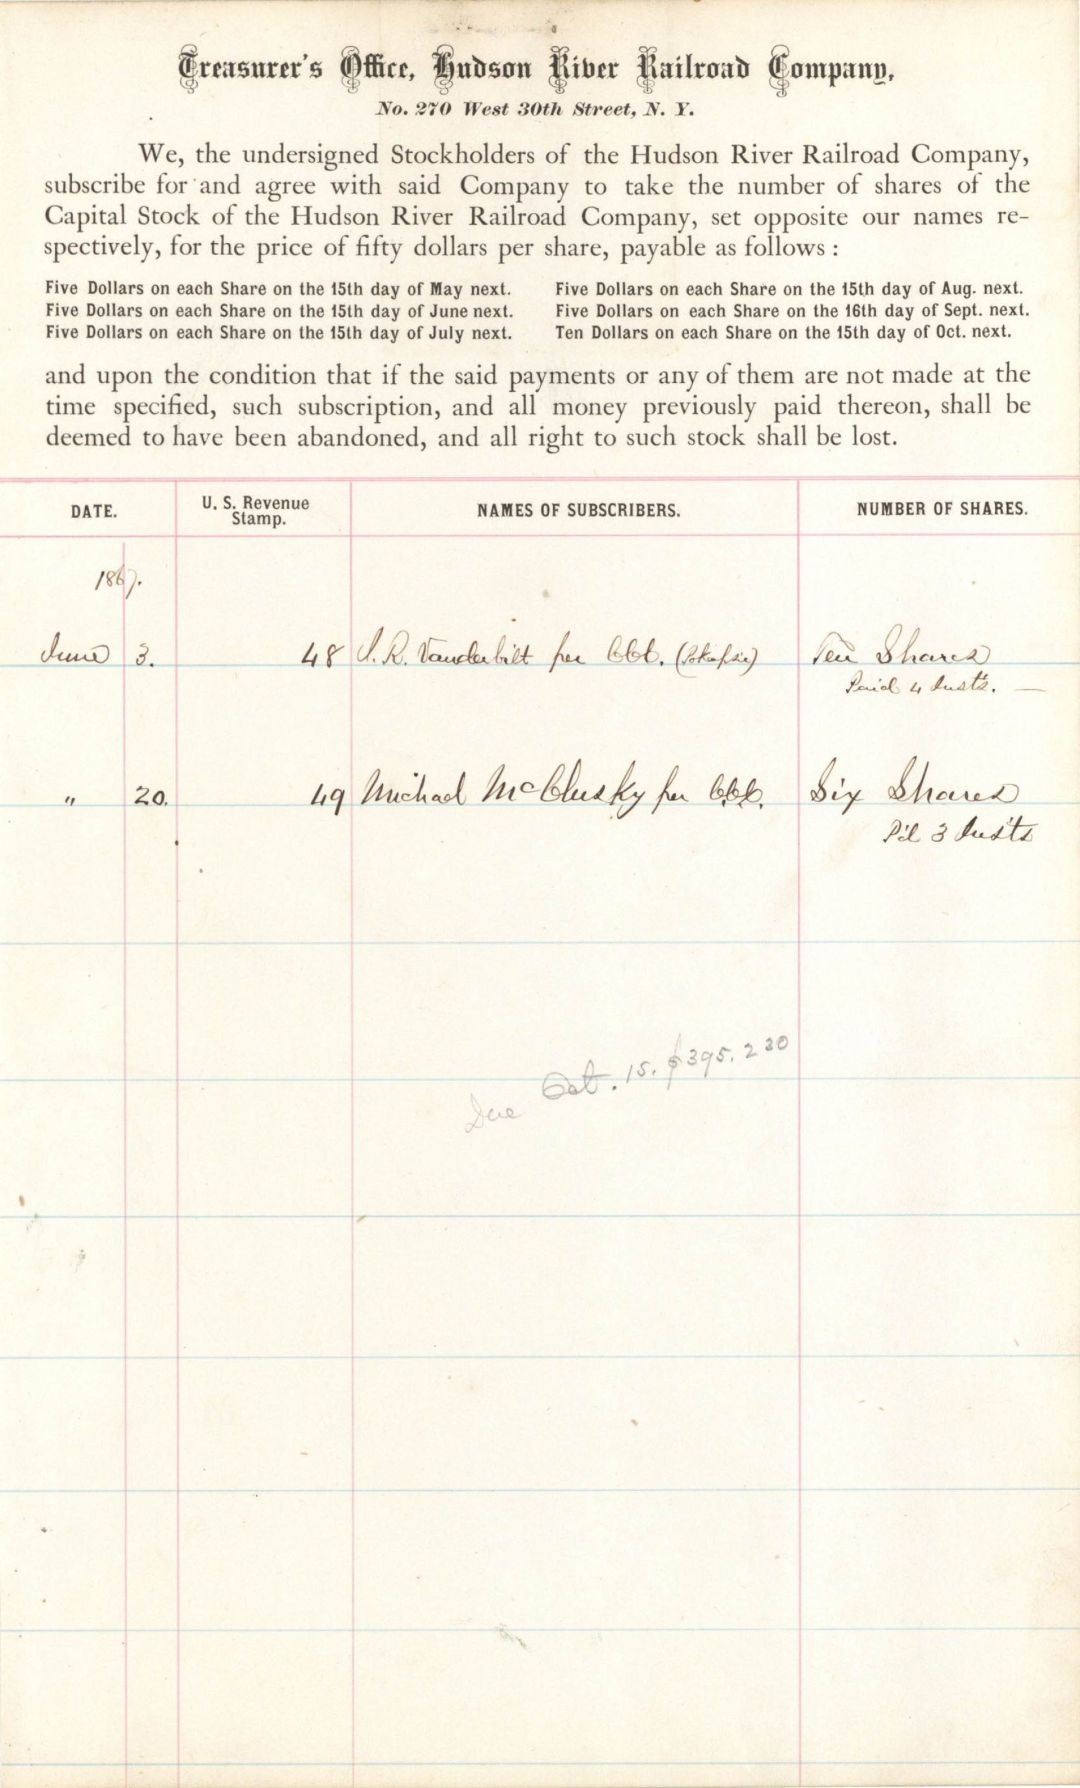 Treasurer's Office, Hudson River Railroad Company,
No. 270 West 30th Street, N. Y.
We, the undersigned Stockholders of the Hudson River Railroad Company,
subscribe for and agree with said Company to take the number of shares of the
Capital Stock of the Hudson River Railroad Company, set opposite our names re-
spectively, for the price of fifty dollars per share, payable as follows :
Five Dollars on each Share on the 15th day of May next. Five Dollars on each Share on the 15th day of Aug. next.
Five Dollars on each Share on the 15th day of June next. Five Dollars on each Share on the 16th day of Sept. next.
Five Dollars on each Share on the 15th day of July next. Ten Dollars on each Share on the 15th day of Oct. next.
and upon the condition that if the said payments or any of them are not made at the
time specified, such subscription, and all money previously paid thereon, shall be
deemed to have been abandoned, and all right to such stock shall be lost.
DATE. U. S. Revenue Stamp. NAMES OF SUBSCRIBERS. NUMBER OF SHARES.
1867.
June 3. 48 J. R. Vanderbilt per Ten Shares
Paid 4 Insts.
" 20. 49 Michael McClusky per Six Shares
Pd 3 Insts
Due Oct. 15. $395.230